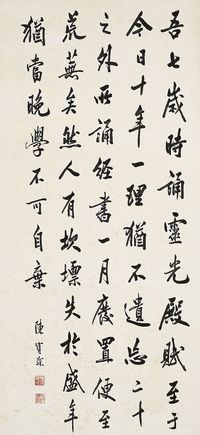 吾七歲時誦靈光殿賦至于
今日十年一理猶不遺忘二十
之外所誦經書一月廢置便至
荒蕪矣然人有坎壈失於盛年
猶當晚學不可自棄
陳寶琛